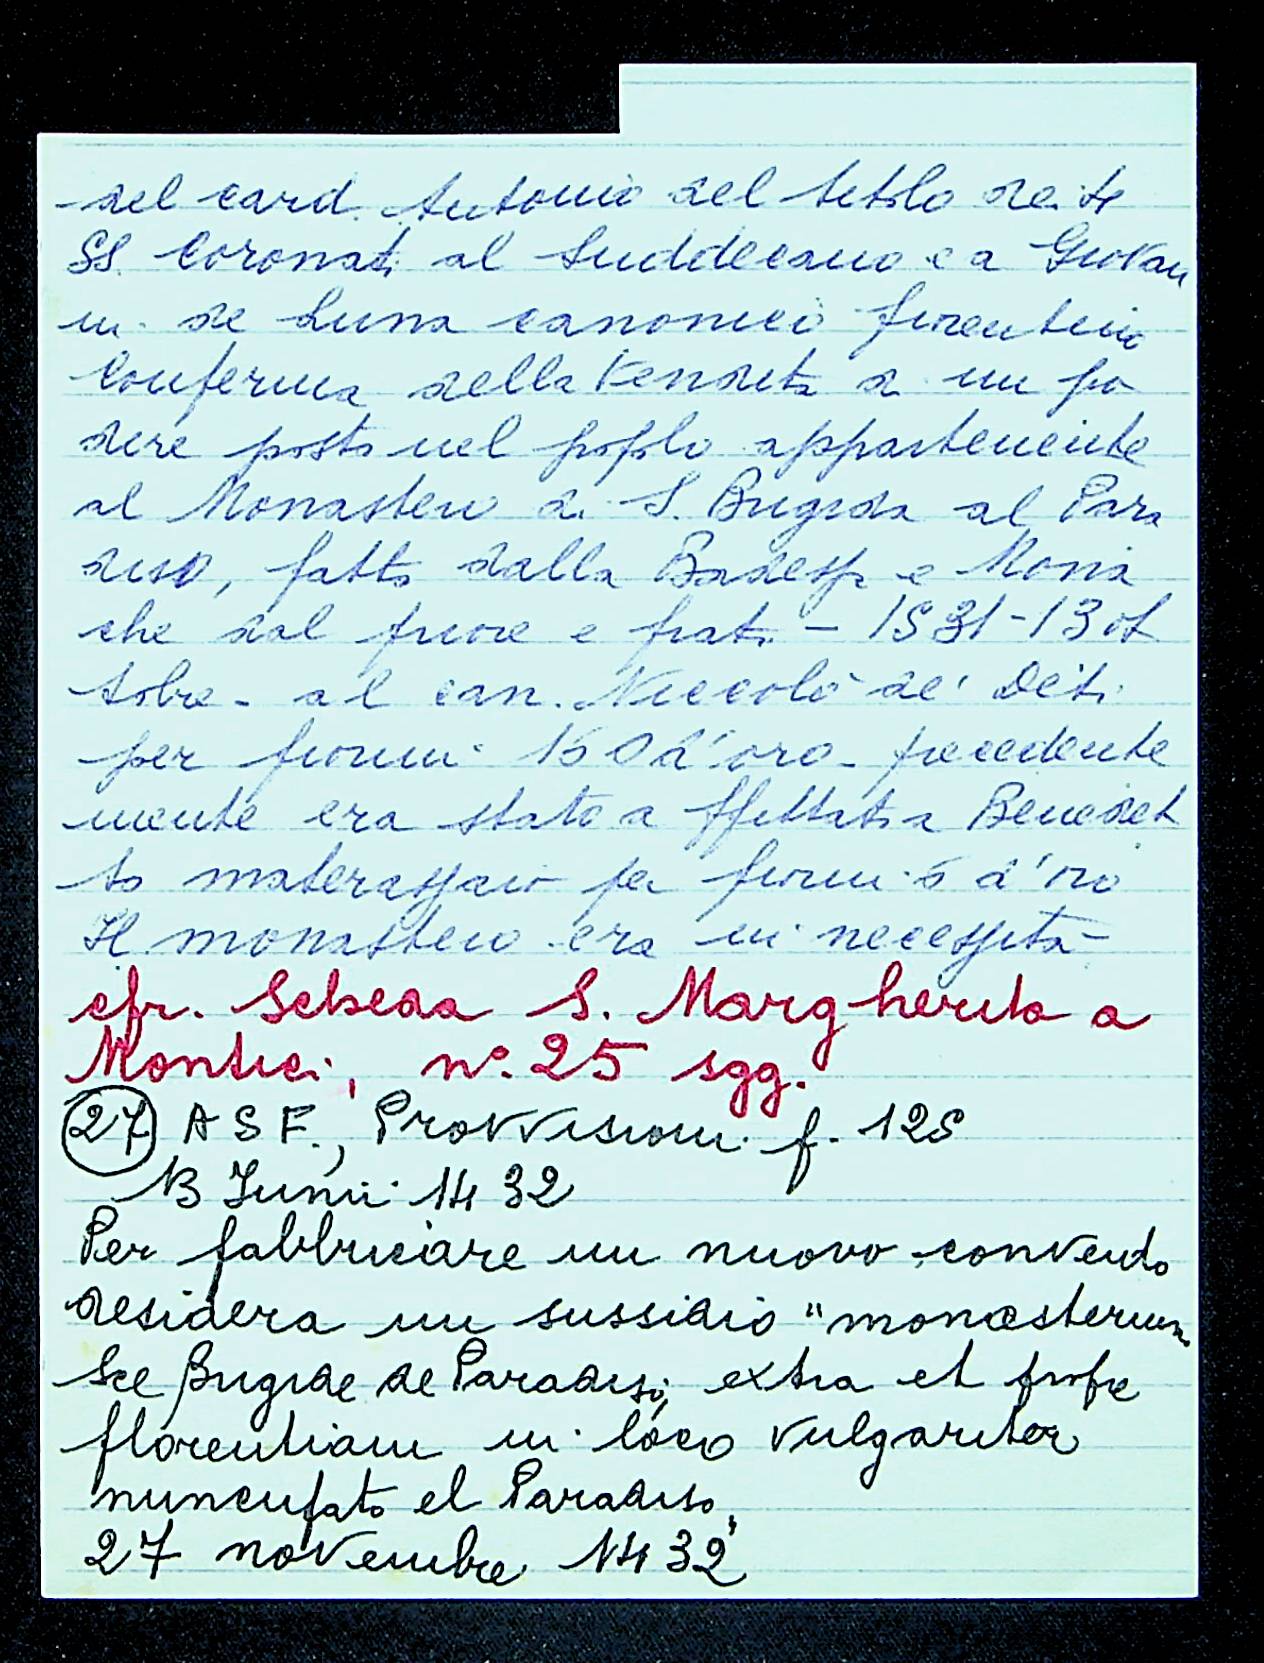 del card. Antonio del titolo dei 4
SS. Coronati al Suddecano e a Giovan
ni de Luna canonico fiorentino
Conferma della vendita di un po
dere posto nel popolo appartenente
al Monastero di S. Brigida al Para
diso, fatto dalla Badessa e Mona
che dal priore e frati - 1531 - 13 ot
tobre - al can. Niccolò de' Deti
per fiorini 150 d'oro - precedente
mente era stato affittato a Benedet
to materassaio per fiorini 6 d'oro
Il monastero era in necessità
cfr. Scheda S. Margherita a
Montici, n°. 25 sgg.
27 ASF., Provvisioni f. 125
13 Junii 1432
Per fabbricare un nuovo convento
desidera un sussidio "monasterium
Sce Brigide de Paradiso, extra et prope
florentiam in loco vulgariter
nuncupato el Paradiso"
27 novembre 1432